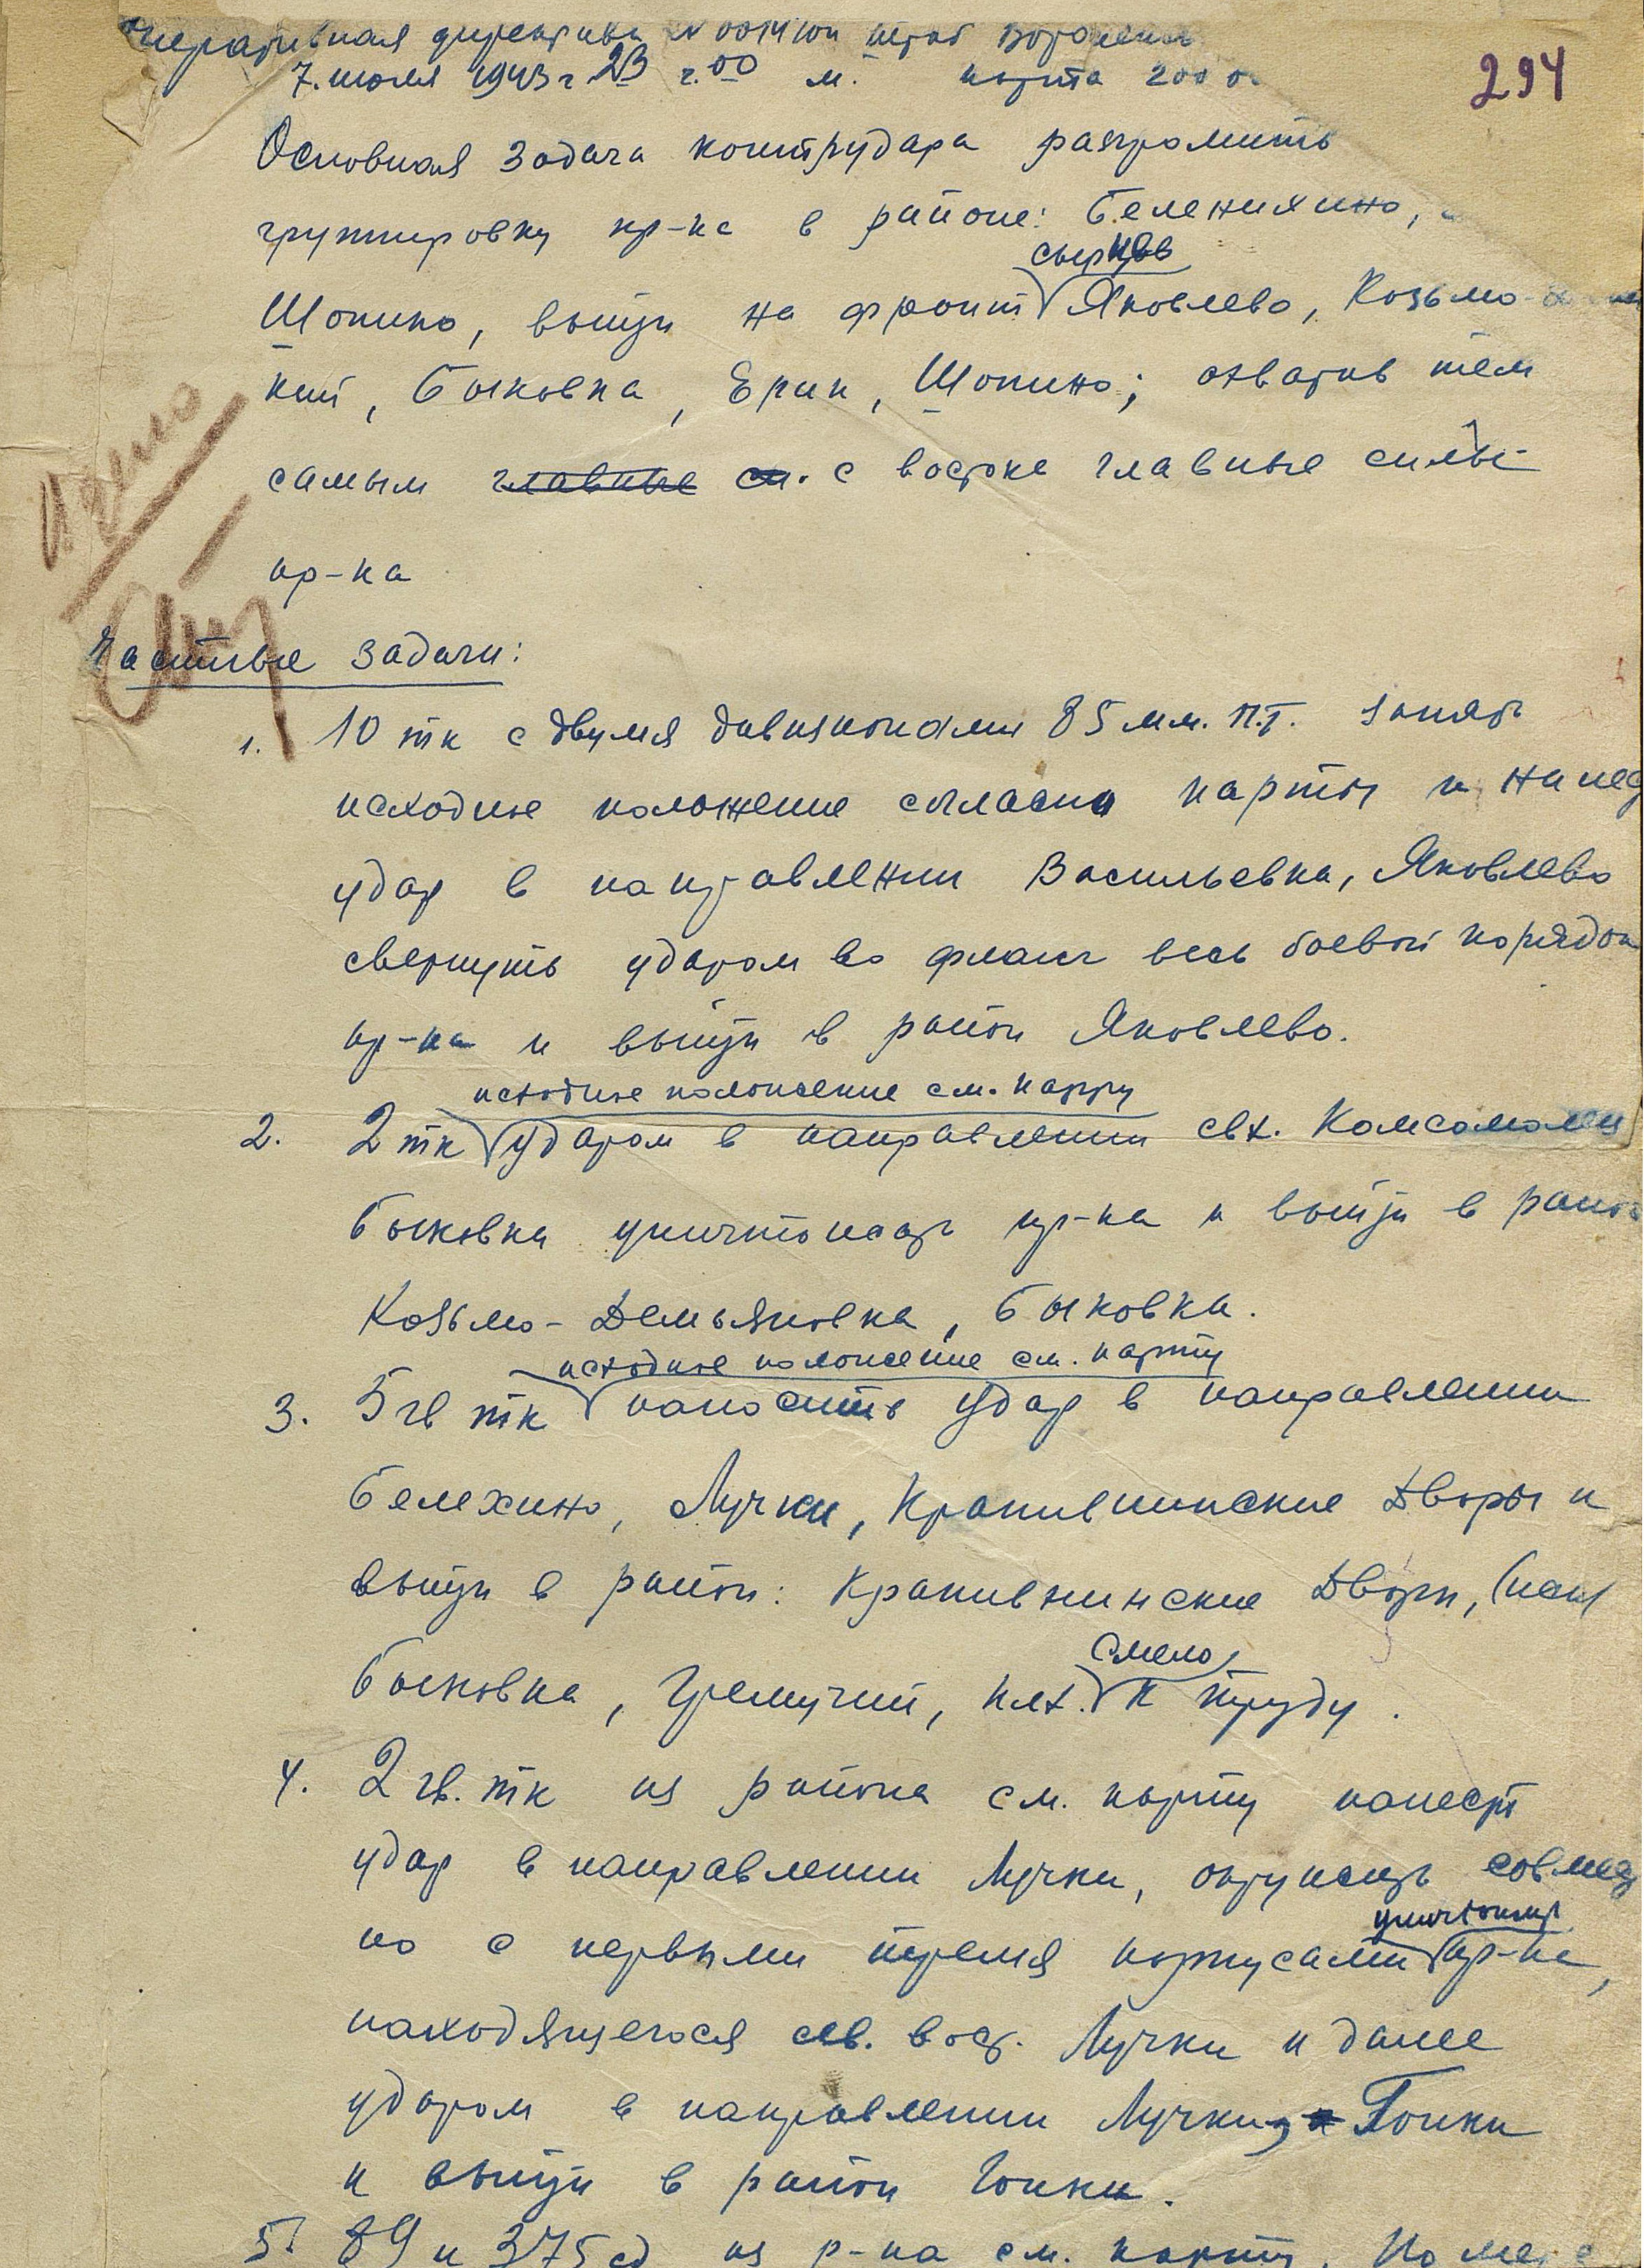 Оперативная директива № 0014/оп штаб Воронеж
7. июля 1943 г 23 ч. 00 м. карта 200 0
294
Основная задача контрудара разгромить
группировку пр-ка в районе: Беленихино,
Сырцев
Шопино, выйти на фронт Яковлево, Козьмо-
кий, Быковка, Ерик, Шопино; охватив тем
самым главные с. с востока главные силы
пр-ка
Частные задачи:
1. 10 тк с двумя дивизионами 85 мм. п.т. занять
исходное положение согласно карты и нанес
удар в направлении Васильевка, Яковлево
свернуть ударом во фланг весь боевой порядок
пр-ка и выйти в район Яковлево.
исходное положение см. карту
2. 2 тк ударом в направлении свх. Комсомолец
Быковка уничтожать пр-ка и выйти в район
Козьмо-Демьяновка, Быковка.
исходное положение см. карту
3. 5 гв тк наносить удар в направлении
Белехино, Лучки, Крапивинские Дворы и
выйти в район: Крапивнинские Дворы, (иск)
Смело
Быковка, Гремучий, клх. к труду.
4. 2 гв. тк из района см. карту нанест
удар в направлении Лучки, окружать совмес
уничтожить
но с первыми тремя корпусами пр-ка,
находящегося сев. вост. Лучки и далее
ударом в направлении Лучки, Гонки
и выйти в район Гонки.
5. 89 и 375 сд из р-на см. карту. По мере